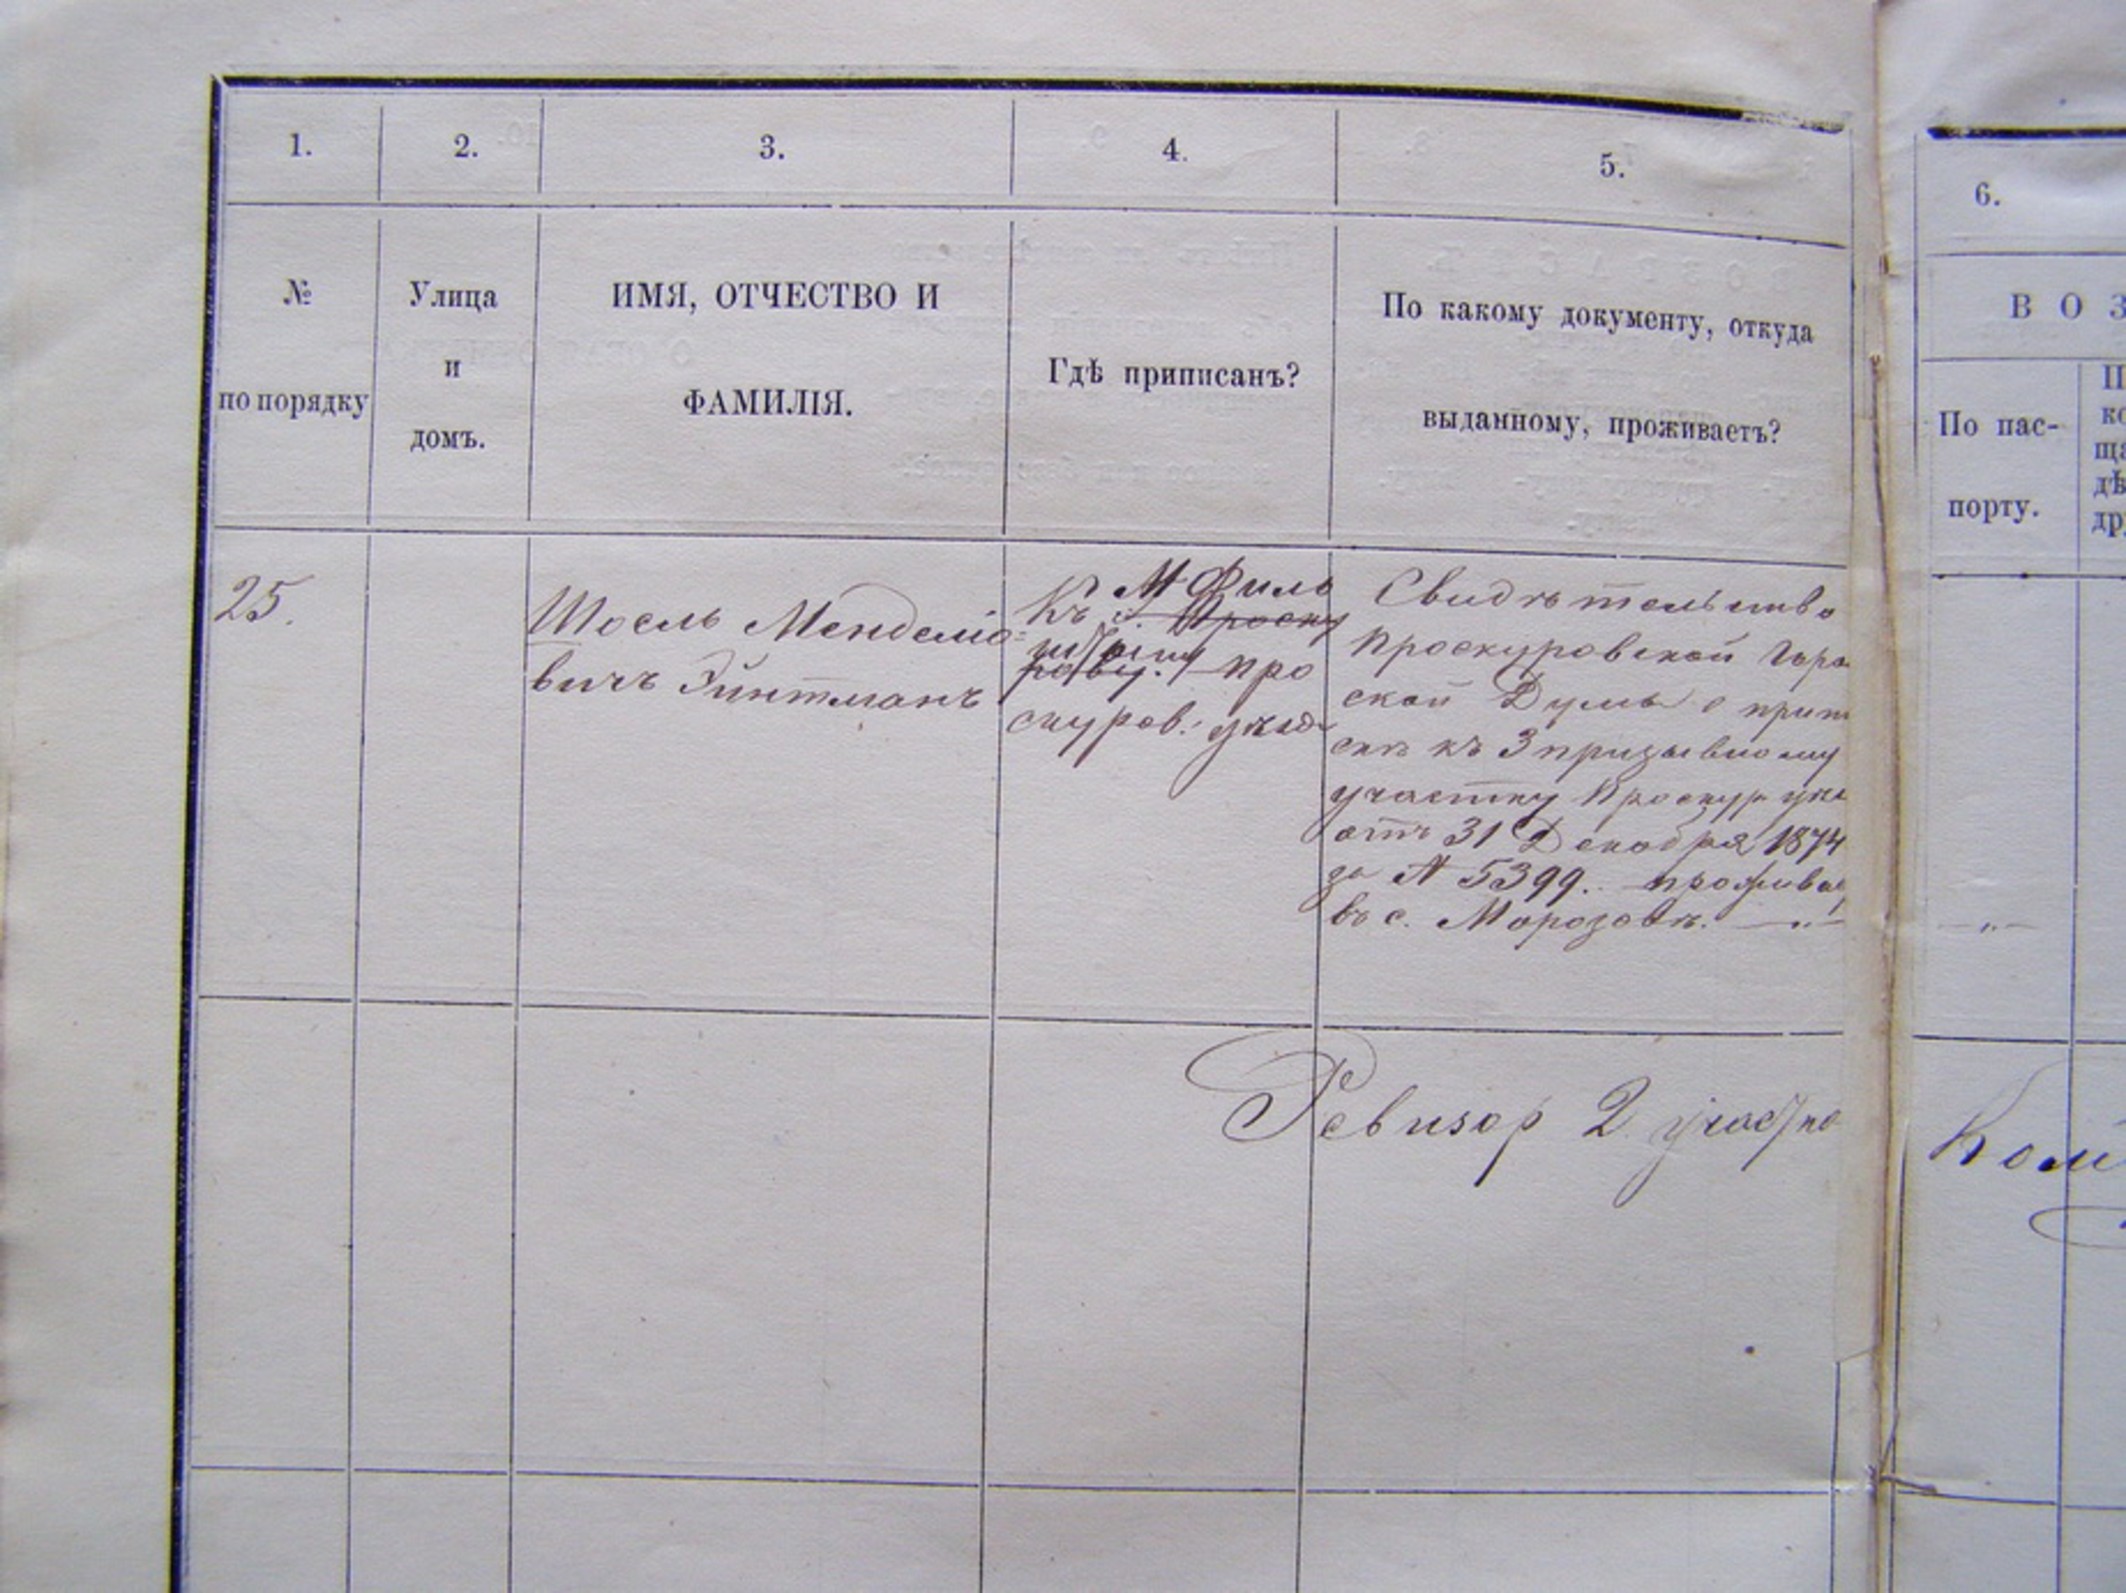 1. 2. 3. 4. 5. 6.
№
по порядку
Улица
и
домъ.
ИМЯ, ОТЧЕСТВО И
ФАМИЛІЯ.
Гдѣ приписанъ?
По какому документу, откуда
выданному, проживаетъ?
ВОЗ
По пас-
порту.
25.
Шоель Менделіо=
вичъ Эйнтманъ
М Филь
Къ г. Проску
штыну
рову. про
скуров: уѣзд
Свидѣтельство
Проскуровской Горо
ской Думы о припи
скѣ къ 3 призывному
участку Проскур уѣз
отъ 31 Декабря 1874
за № 5399. прожива
въ с. Морозовѣ. — " —
— " —
Ревизор 2 участка